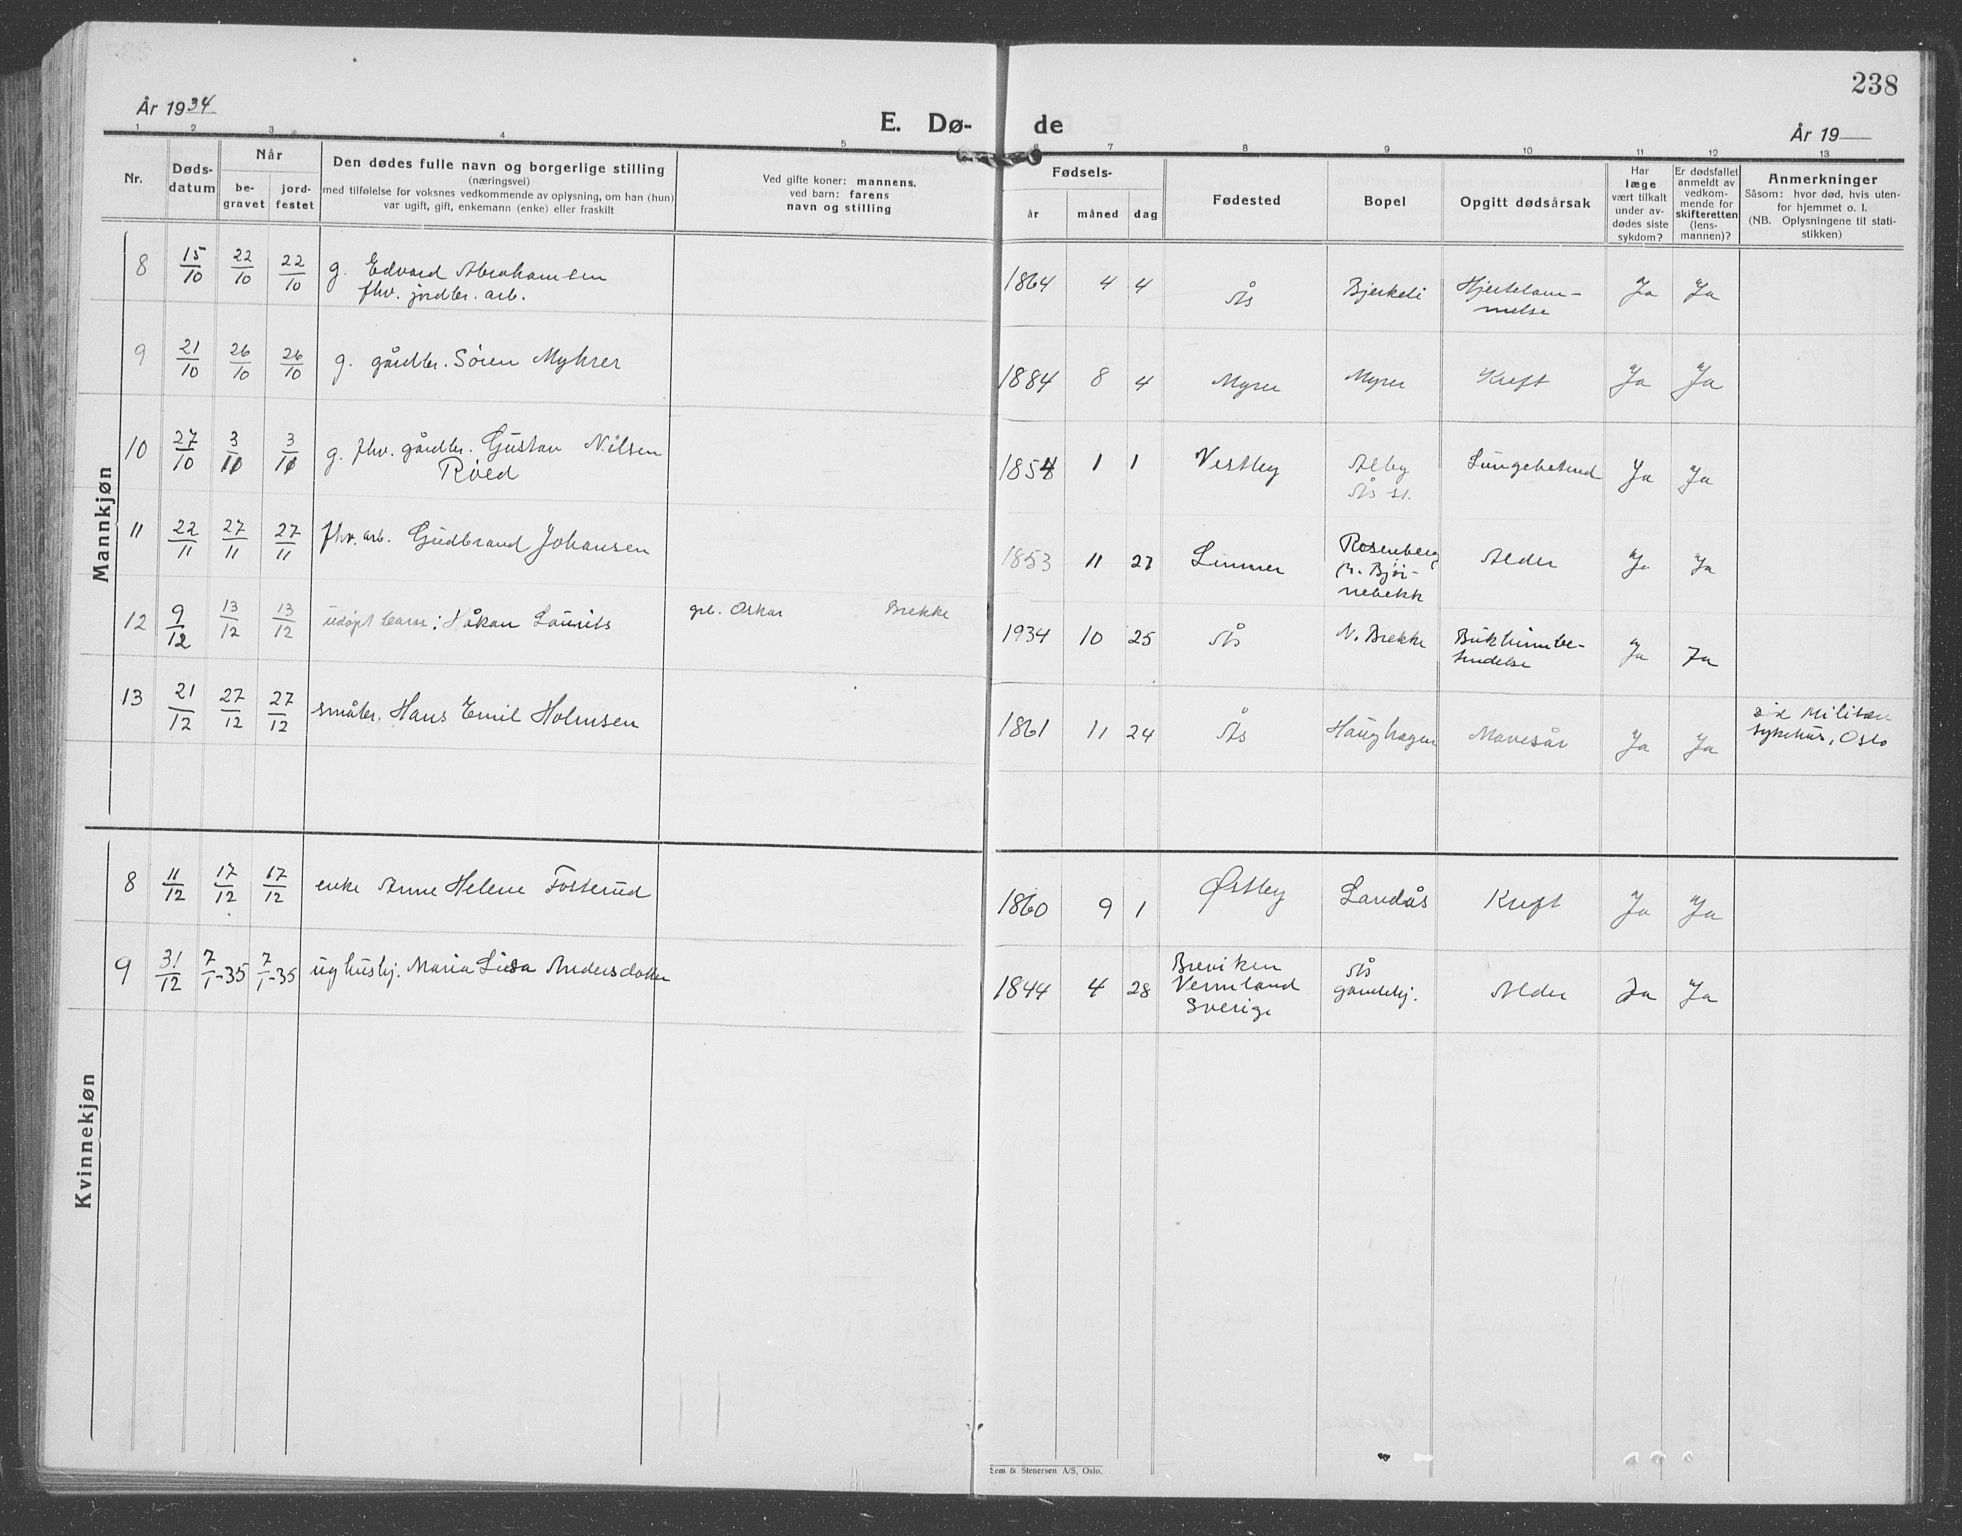 238
År 1934
E. Dø-
de
År 19
1 2 3 4 5 6 7 8 9 10 11 12 13
Nr.
Døds-
datum
Når
be-
gravet
jord-
festet
Den dødes fulle navn og borgerlige stilling
(næringsvei)
med tilføielse for voksnes vedkommende av oplysning, om han (hun)
var ugift, gift, enkemann (enke) eller fraskilt
Ved gifte koner: mannens,
ved barn: farens
navn og stilling
Fødsels-
år
måned
dag
Fødested
Bopel
Opgitt dødsårsak
Har
læge
vært tilkalt
under av-
dødes siste
sykdom?
Er dødsfallet
anmeldt av
vedkom-
mende for
skifteretten
(lens-
mannen)?
Anmerkninger
Såsom: hvor død, hvis uten-
for hjemmet o. l.
(NB. Oplysningene til stati-
stikken)
Mannkjøn
8 15/10 22/10 22/10 g. Edvard Abrahamsen
fhv. jordbr. arb.
1864 4 4 Ås Bjerkeli Hjertelam-
melse Ja Ja
9 21/10 26/10 26/10 g. gårdbr. Søren Myhrer
1884 8 4 Myrer Myrer Kreft Ja Ja
10 27/10 3/11 3/11 g. fhv. gårdbr. Gustav Nilsen
Røed
1854 1 1 Vestby Alby
Ås st. Lungebetend Ja Ja
11 22/11 27/11 27/11 fhv. arb. Gudbrand Johansen
1853 11 27 Lunner Rosenberg
p. Bjør-
nebekk Alder Ja Ja
12 9/12 13/12 13/12 udøpt barn: Håkon Laurits gbr. Oskar Brekke
1934 10 25 Ås N. Brekke Bukhinnebe-
tendelse Ja Ja
13 21/12 27/12 27/12 småbr. Hans Emil Holmsen
1861 11 24 Ås Haughagen Mavesår Ja Ja
Militær
sykehus, Oslo
Kvinnekjøn
8 11/12 17/12 17/12 enke Anne Helene Fosterud
1860 9 1 Østby Landås Kreft Ja Ja
9 31/12 7/1-35 7/1-35 ug husbj. Maria Lisa Andersdatter
1844 4 28 Breviken
Vermland
Sverige Ås
gamlehj. Alder Ja Ja
Sem & Stenersen A/S, Oslo.